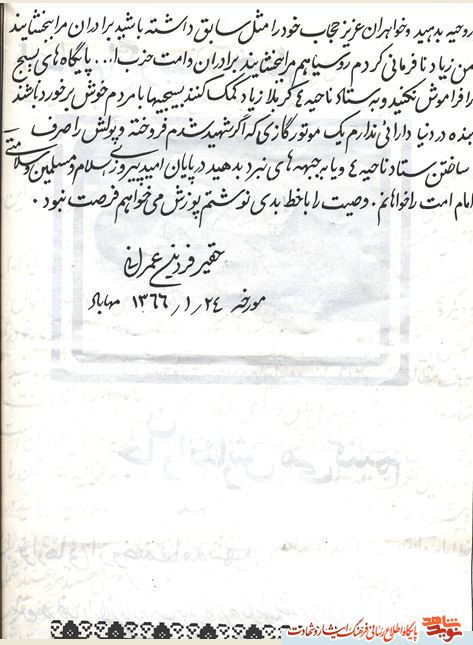 روحیه بدهید و خواهران عزیز حجاب خود را مثل سابق داشته باشید برادران مرا ببخشایند
من زیاد نافرمانی کردم روسیاهم مرا ببخشایند برادران و امت حزب ا... پایگاه های بسیج
را فراموش نکنید و به ستاد ناحیه ٤ کربلا زیاد کمک کنند بسیجیها با مردم خوش برخورد باشند
بنده در دنیا دارائی ندارم یک موتور گازی که اگر شهید شدم فروخته و پولش را صرف
ساختن ستاد ناحیه ٤ و یا به جبهه های نبرد بدهید در پایان امید پیروزی اسلام و مسلمین و سلامتی
امام امت را خواهانم . وصیت را با خط بدی نوشتم پوزش می خواهم فرصت نبود .
حقیر فردین عمرانی
مورخه ١٣٦٦/١/٢٤ مهاباد
نوید شاهد
پایگاه اطلاع رسانی فرهنگ ایثار و شهادت